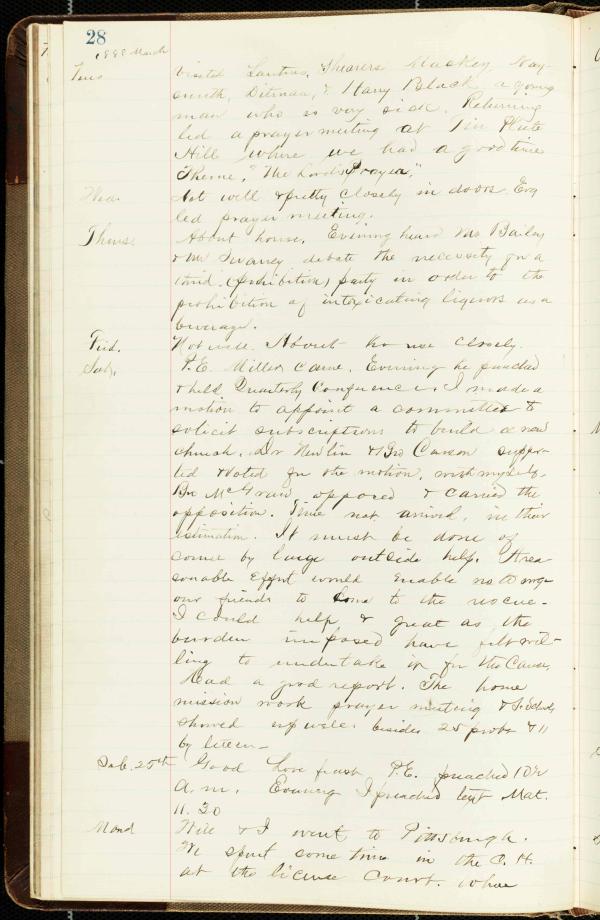 28
1888 March
Tues Visited Shearers Mackey Nay-
smith, & Harry Black a young
man who is very sick. Returning
led a prayer meeting at Tin Plate
Hill where we had a good time
Theme, "The Lord's Prayer."
Wed. Not well & pretty closely in doors Eve
led prayer meeting.
Thurs. About house. Evening heard Mr Bailey
& Mr Swaney debate the necessity for a
third (prohibition) party in order to the
prohibition of intoxicating liquors as a
beverage.
Frid. Not well. About house closely.
Sat. P.E. Miller came. Evening he preached
& held Quarterly Conference. I made a
motion to appoint a committee to
solicit subscriptions to build a new
church. Dr Newlin & Bro Carson suppor-
ted & voted for the motion, with myself.
Bro McGraw opposed & carried the
opposition. Time not arrived, in their
estimation. It must be done of
course by large outside help. A rea
sonable effort would enable us to urge
our friends to come to the rescue -
I could help & great as the
burden imposed have felt wil-
ling to undertake it for the Cause.
Had a good report. The home
mission work prayer meeting & S. Schools
showed up well besides 25 probs & 11
by letter -
Sab. 25th Good Love feast P.E. preached 10½
a.m. Evening I preached text Mat.
11.30
Mond Will & I went to Pittsburgh.
We spent some time in the C. H.
at the license court. where